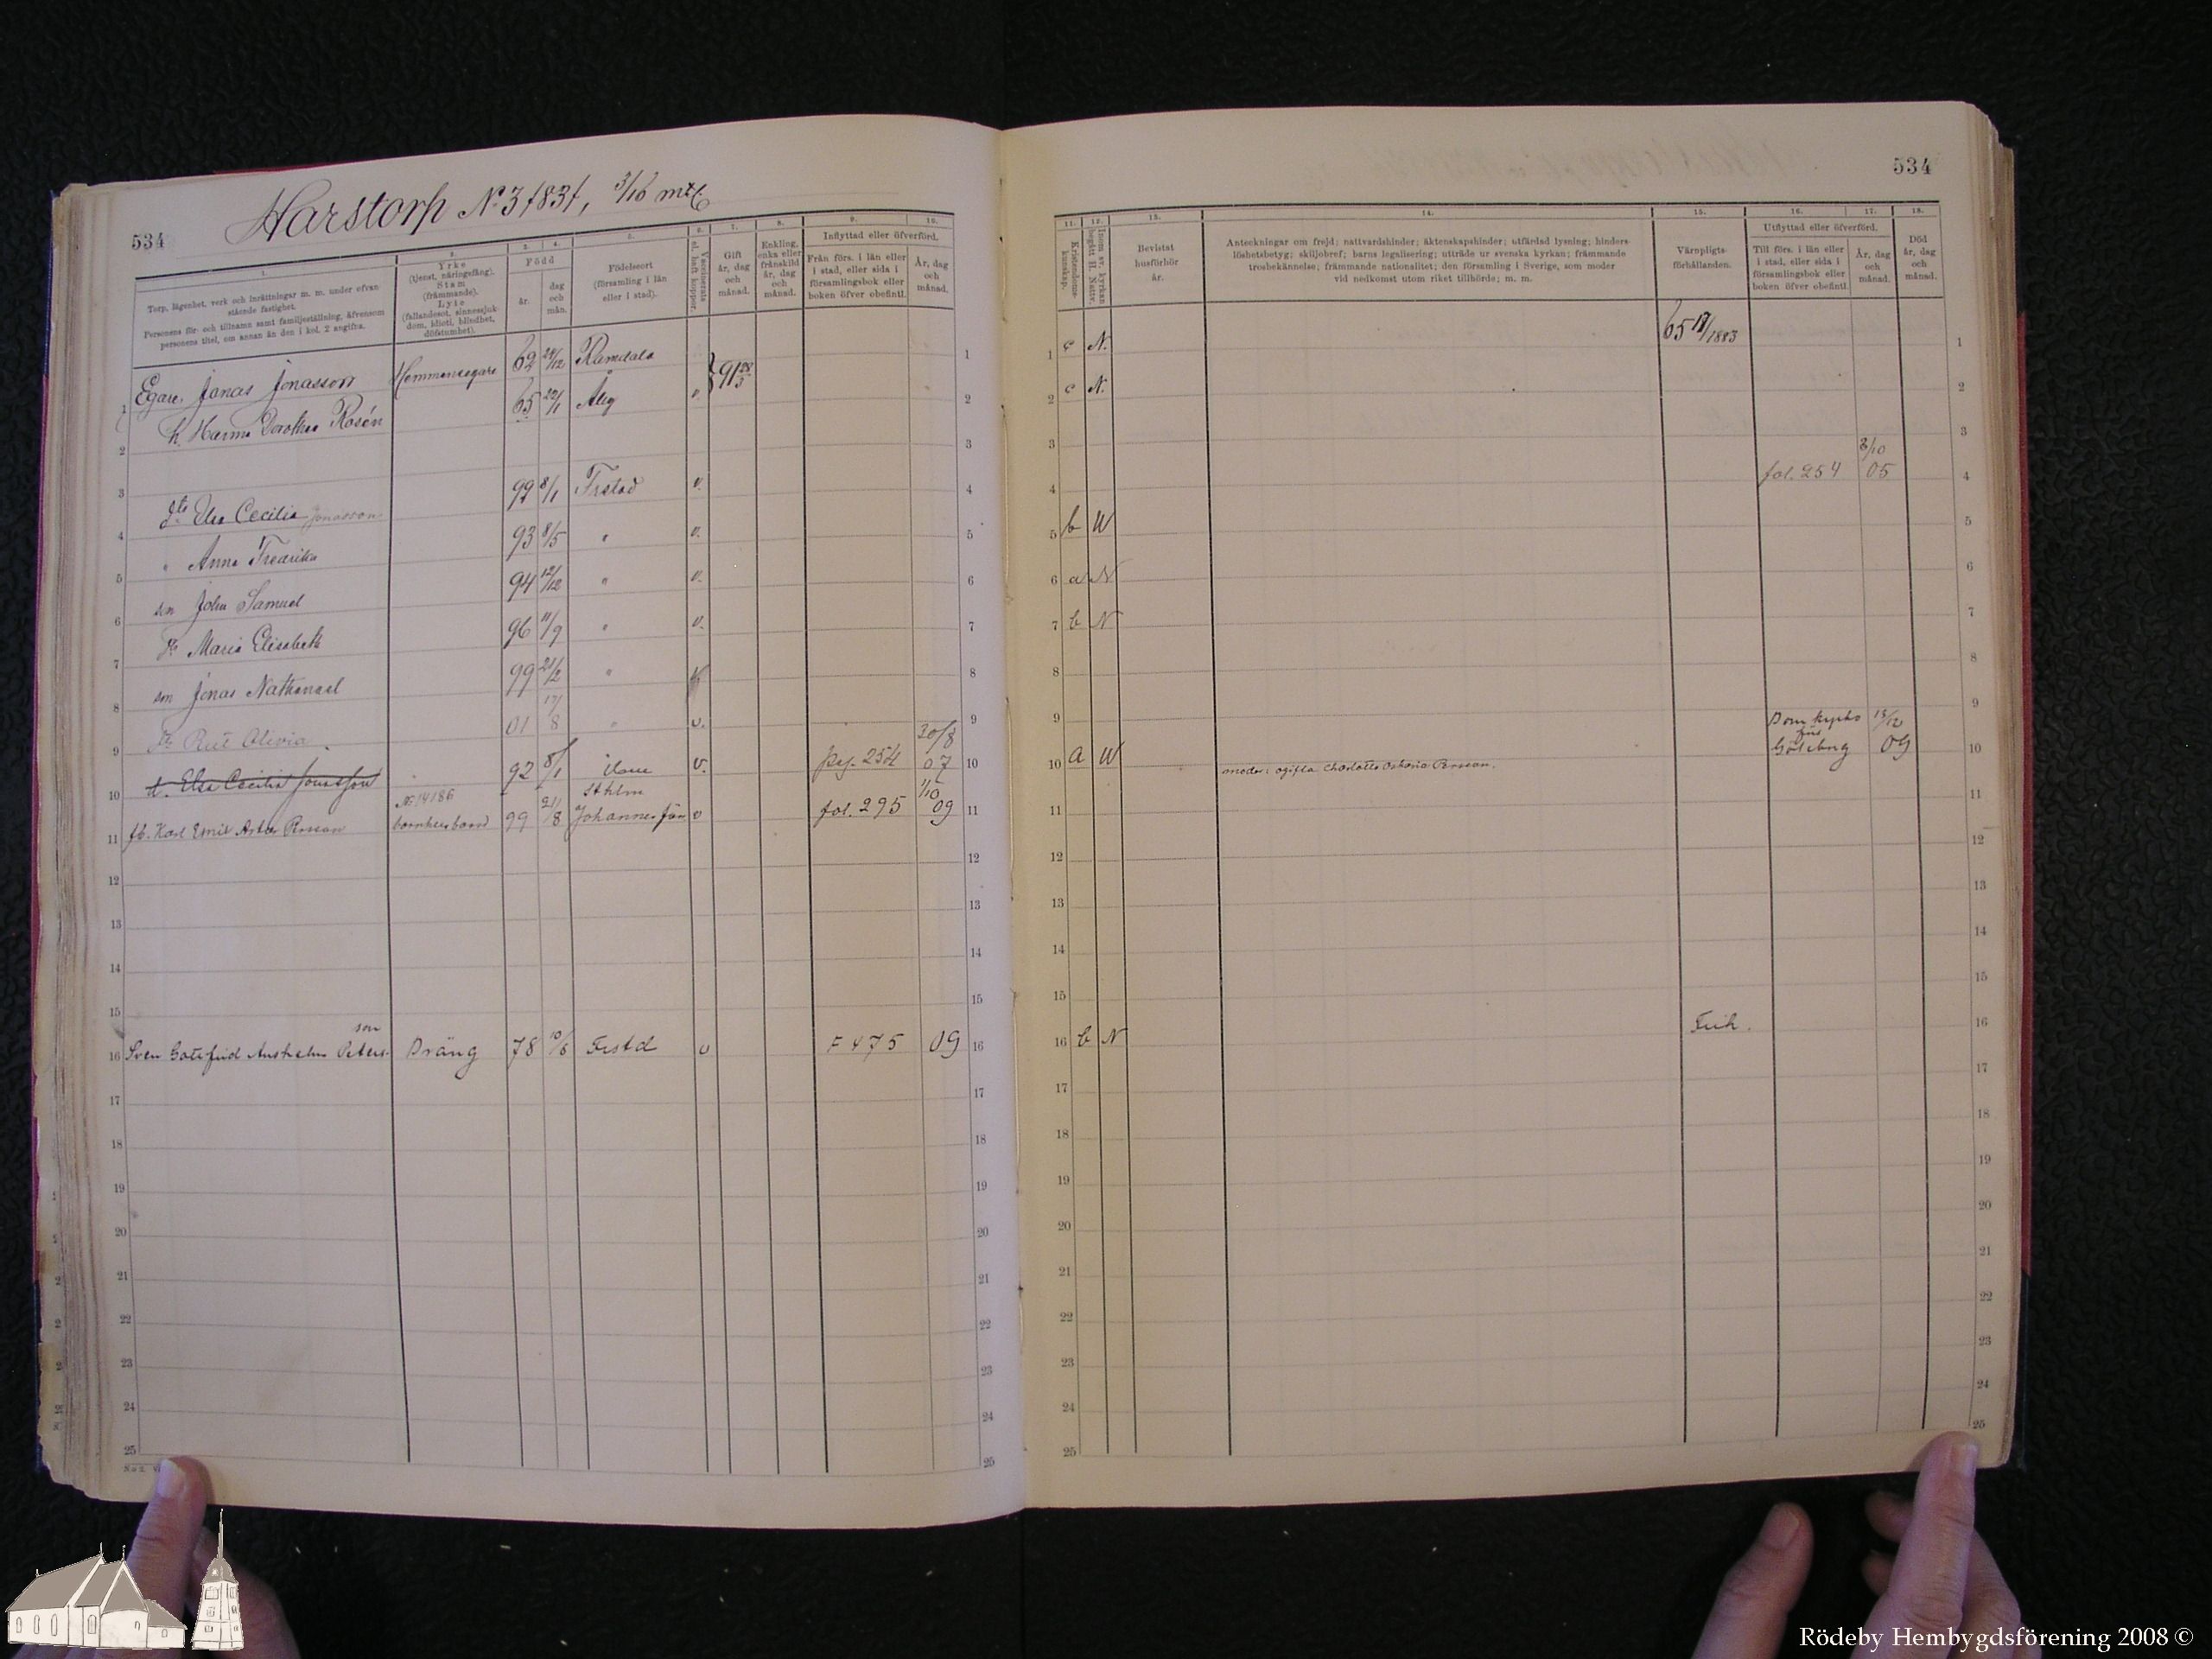 534
Harstorp No 3 /83/, 3/16 mtl
1.
Torp, lägenhet, verk och inrättningar m. m. under ofvan
stående fastighet.
Personens för- och tillnamn samt familjeställning, äfvensom
personens titel, om annan än den i kol. 2 angifna.
2.
Yrke
(tjenst, näringsfång).
Stam
(främmande).
Lyte
(fallandesot, sinnessjuk-
dom, idioti, blindhet,
döfstumhet).
3. 4.
Född
år.
dag
och
mån.
5.
Födelseort
(församling i län
eller i stad).
6.
Vaccinerats
el. haft koppor.
7.
Gift
år, dag
och
månad.
8.
Enkling,
enka eller
frånskild
år, dag
och
månad.
9. 10.
Inflyttad eller öfverförd.
Från förs. i län eller
i stad, eller sida i
församlingsbok eller
boken öfver obefintl.
År, dag
och
månad.
1 Egare Jonas Jonasson Hemmansegare 62 Ramdala 91 28/3 1
2 h. Hanna Dorothea Rosén 65 v. 2
3 3
4 dtr Elsa Cecilia Jonasson 92 8/1 Frstad v. 4
5 " Anna Fredrika 93 8/5 " v. 5
6 son John Samuel 94 12/12 " v. 6
7 dtr Maria Elisabeth 96 11/9 " v. 7
8 son Jonas Nathanael 99 21/2 " 8
9 dtr Rut Olivia 01 17/8 " v. 9
10 d. Elsa Cecilia Jonasson 92 8/1 v. pag. 254 30/8 07 10
11 fb. Karl Emil Artur Persson No 14186 barnhusbarn 99 21/8 Sthlm Johannes förs v fol. 295 1/10 09 11
12 12
13 13
14 14
15 15
16 Sven Gottfrid Anshelm Petersson Dräng 78 10/6 Frstd v F 475 09 16
17 17
18 18
19 19
20 20
21 21
22 22
23 23
24 24
25 25
534
11.
Kristendoms-
kunskap.
12.
Inom sv. kyrkan
begått H. Nattv.
13.
Bevistat
husförhör
år.
14.
Anteckningar om frejd; nattvardshinder; äktenskapshinder; utfärdad lysning; hinders-
löshetsbetyg; skiljobref; barns legalisering; utträde ur svenska kyrkan; främmande
trosbekännelse; främmande nationalitet; den församling i Sverige, som moder
vid nedkomst utom riket tillhörde; m. m.
15.
Värnpligts-
förhållanden.
16. 17.
Utflyttad eller öfverförd.
Till förs. i län eller
i stad, eller sida i
församlingsbok eller
boken öfver obefintl.
År, dag
och
månad.
18.
Död
år, dag
och
månad.
1 c N. 65 17/1883 1
2 c N. 2
3 3
4 fol. 254 3/10 05 4
5 b W 5
6 a N 6
7 b N 7
8 8
9 9
10 a W Domkyrko förs Göteborg 13/12 09 10
moder: ogifta Charlotta Persson.
11 11
12 12
13 13
14 14
15 15
16 b N Frih. 16
17 17
18 18
19 19
20 20
21 21
22 22
23 23
24 24
25 25
Rödeby Hembygdsförening 2008 ©